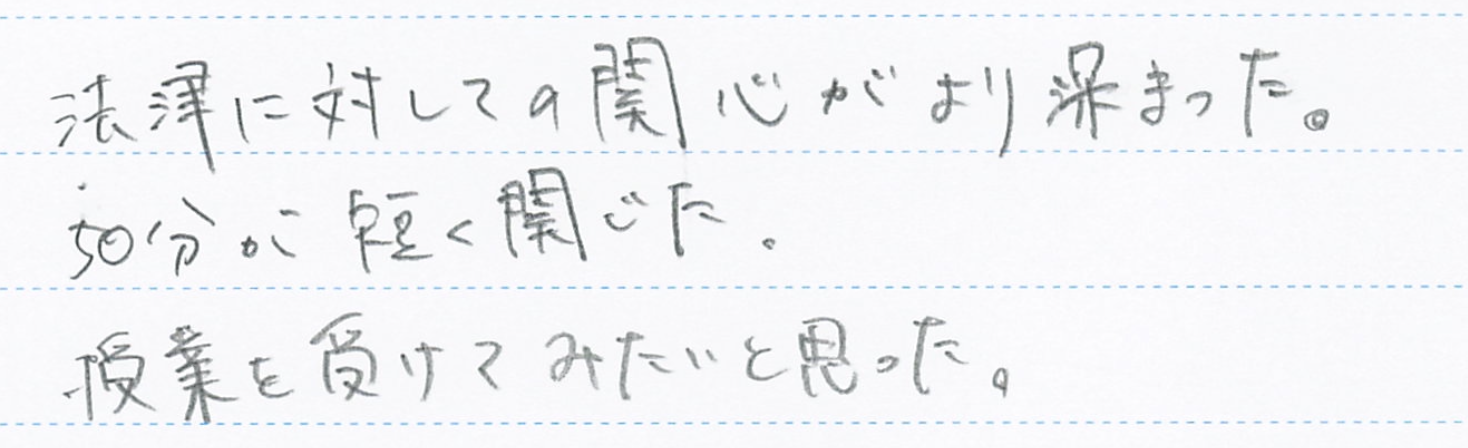 法律に対しての関心がより深まった。
50分が短く関じた。
授業を受けてみたいと思った。